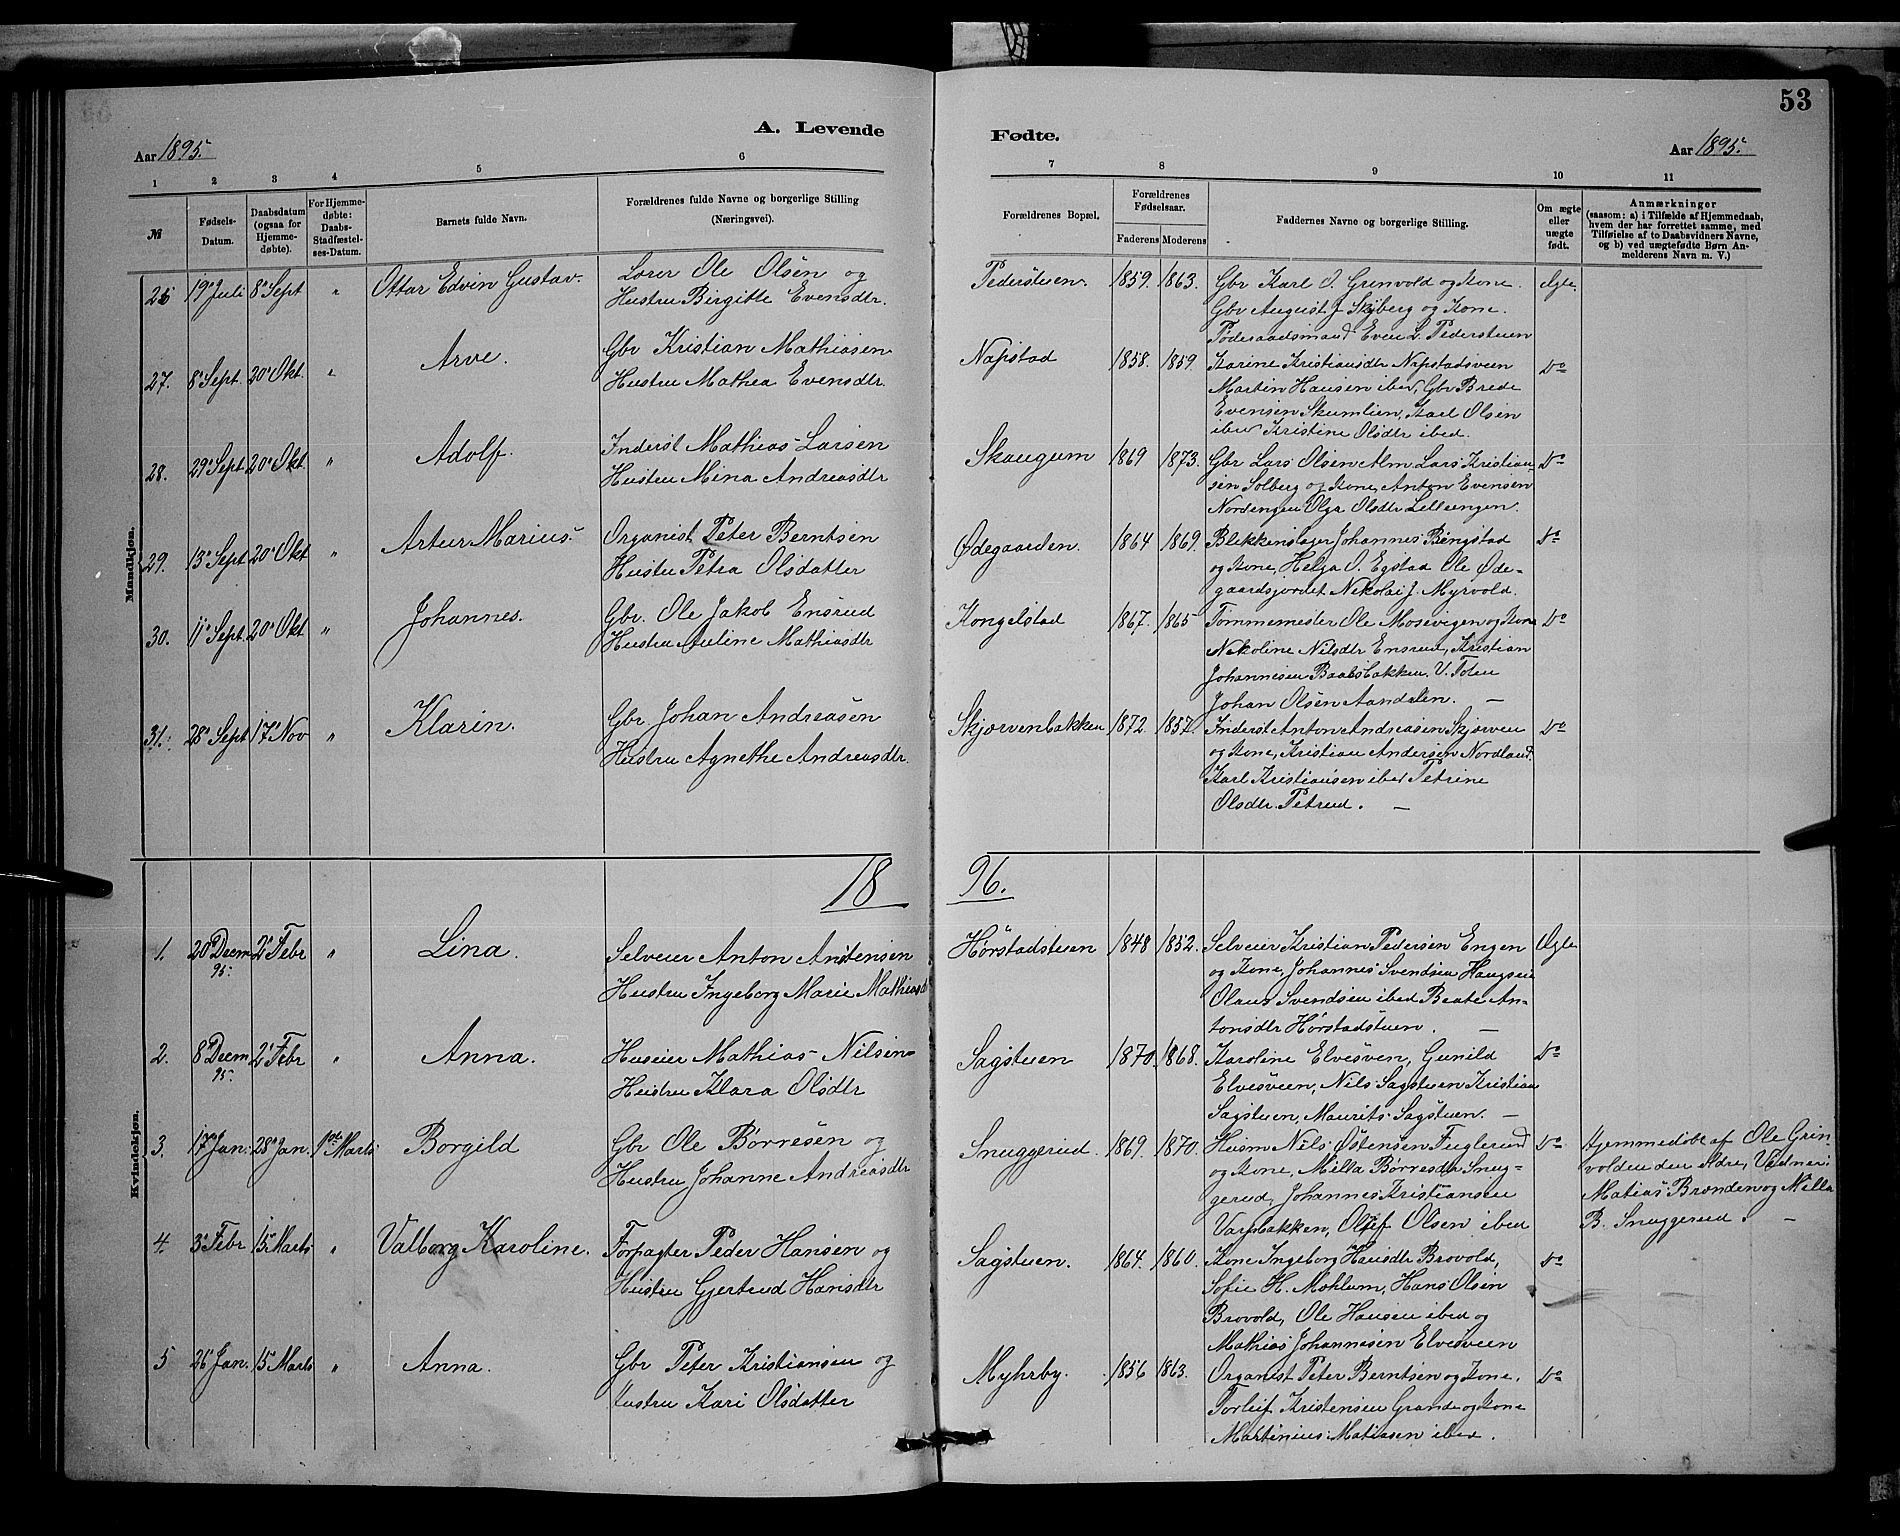 53
A. Levende
Fødte.
Aar 1895.
Aar 1895.
1 2 3 4 5 6
7 8 9 10 11
№
Fødsels-
Datum.
Daabsdatum
(ogsaa for
Hjemme-
døbte).
For Hjemme-
døbte:
Daabs-
Stadfæstel-
ses-Datum.
Barnets fulde Navn.
Forældrenes fulde Navne og borgerlige Stilling
(Næringsvei).
Forældrenes Bopæl.
Forældrenes
Fødselsaar.
Faderens Moderens
Faddernes Navne og borgerlige Stilling.
Om ægte
eller
uægte
født.
Anmærkninger
(saasom: a) i Tilfælde af Hjemmedaab,
hvem der har forrettet samme, med
Tilføielse af to Daabsvidners Navne,
og b) ved uægtefødte Børn An-
melderens Navn m. V.)
Mandkjøn.
26 19 Juli 8 Sept " Ottar Edvin Gustav.
Lærer Ole Olsen og
Hustru Birgitte Evensdtr.
Pederstuen. 1859. 1863.
Gbr Karl O. Grinvold og Kone.
Gbr August J Skjberg og Kone.
Føderaadsmand Even L. Pederstuen
Ægte.
27. 8 Sept. 20 Okt. " Arve.
Gbr Kristian Mathiasen
Hustru Mathea Evensdtr.
Napstad 1858. 1859.
Karine Kristiansdtr Napstadsveen
Martin Hansen ibed, Gbr Brede
Evensen Skumlien, Karl Olsen
ibed Kristine Olsdtr ibed.
Do
28. 29 Sept 20 Okt " Adolf.
Inderst Mathias Larsen
Hustru Mina Andreasdtr
Skaugum 1869 1873.
Gbr Lars Olsen Alm Lars Kristian-
sen Solberg og Kone, Anton Evensen
Nordengen Olga Olsdtr Lilleengen.
Do
29. 13 Sept 20 Okt " Artur Marius
Organist Peter Berntsen
Hustru Petra Olsdatter
Ødegaarden. 1864 1869.
Blikkenslager Johannes Bingstad
og Kone, Helga O. Egstad Ole Øde-
gaardsjordet Nikolai J. Myrvold.
Do
30. 11 Sept. 20 Okt " Johannes.
Gbr. Ole Jakob Ensrud
Hustru Auline Mathiasdtr
Kongelstad 1867. 1865
Tømmemester Ole Mosevigen og Kone
Nikoline Nilsdtr Ensrud, Kristian
Johannesen Baalsbakken V. Toten
Johan Olsen Aandalen. —
Do
31. 28 Sept 17 Nov " Klarin.
Gbr. Johan Andreasen
Hustru Agnethe Andreasdtr.
Skjærvenbakken 1872. 1857.
Inderst Anton Andreasen Skjærven
og Kone, Kristian Andersen Nordland.
Karl Kristiansen ibed Petrine
Olsdtr. Petrud. —
Do
1896.
Kvindekjøn.
1. 20 Decm 95. 2 Febr " Lina.
Selveier Anton Antensen
Hustru Ingeborg Marie Mathiasd
Hørstadstuen 1848 1852.
Selveier Kristian Pedersen Engen
og Kone, Johannes Svendsen Haugsen
Olaus Svendsen ibed Beate An-
tonsdtr Hørstadstuen. —
Ægte
2. 8 Decm 95. 2 Febr " Anna.
Huseier Mathias Nilsen
Hustru Klara Olsdtr
Sagstuen 1870. 1868.
Karoline Elvesven, Gunild
Elvesveen, Nils Sagstuen Kristian
Sagstuen, Maurits Sagstuen. —
Do
3. 17 Jan. 28 Jan. 1ste Marts Borgild
Gbr Ole Børresen og
Hustru Johanne Andreasdtr
Snuggerud. 1869. 1870.
Husm Nils Østensen Fuglerud
og Kone, Milla Børresdtr Snug-
gerud, Johannes Kristiansen
Varpbakken, Olef Olsen ibed
Do
Hjemmedøbt af Ole Grin-
volden den Ældre, Vidner:
Matias Brænden og Milla
B. Snuggerud. —
4. 3 Febr 15 Marts " Valborg Karoline.
Forpagter Peder Hansen og
Hustru Gjertrud Hansdtr
Sagstuen. 1864. 1860.
Kone Ingeborg Hansdtr Brovold,
Sofie H. Mæhlum, Hans Olsen
Brovold, Ole Hansen ibed og
Mathias Johannesen Elvesveen
Do
5 26 Jan. 15 Marts " Anna.
Gbr Peter Kristiansen og
Hustru Kari Olsdatter
Myhrby. 1856 1863.
Organist Peter Berntsen og Kone.
Torleif Kristensen Grande og Kone
Martinius Matiasen ibed.
Do